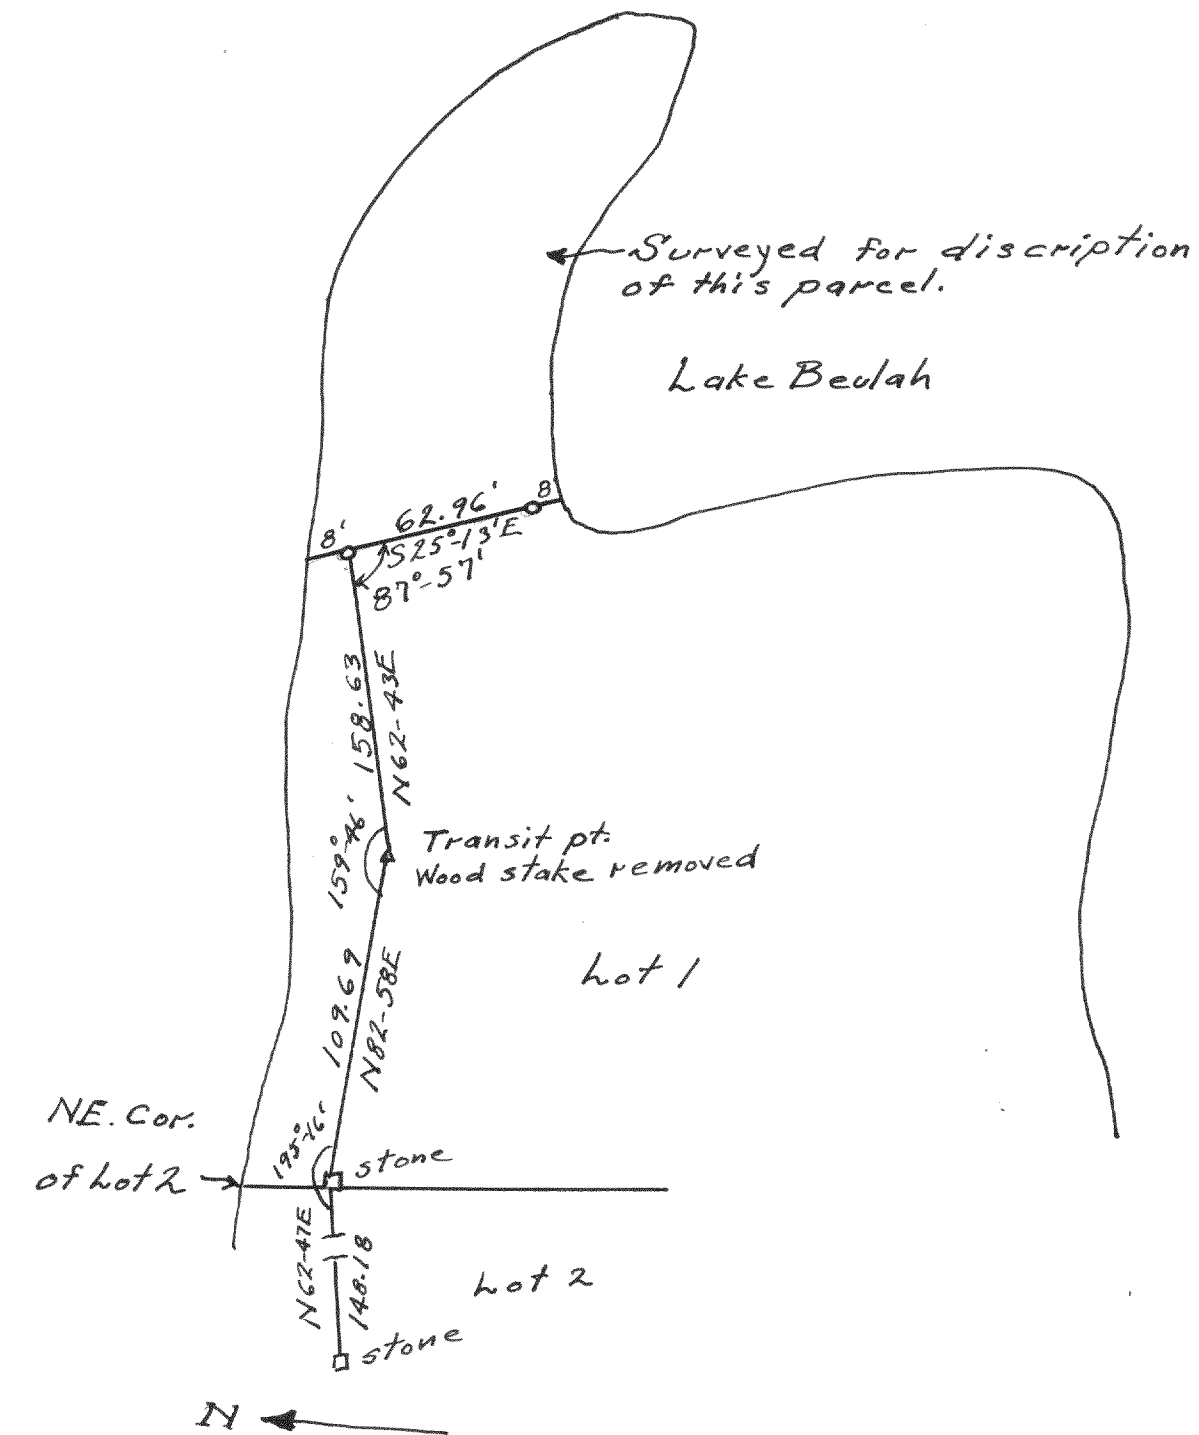 Surveyed for discription
of this parcel.
Lake Beulah
8' 62.96' 8'
S25°-13'E
87°-57'
158.63
N62-43E
159°-46'
Transit pt.
Wood stake removed
109.69
N82-58E
Lot 1
NE. Cor.
of Lot 2
195°-16'
stone
N62-47E
148.18
Lot 2
stone
N